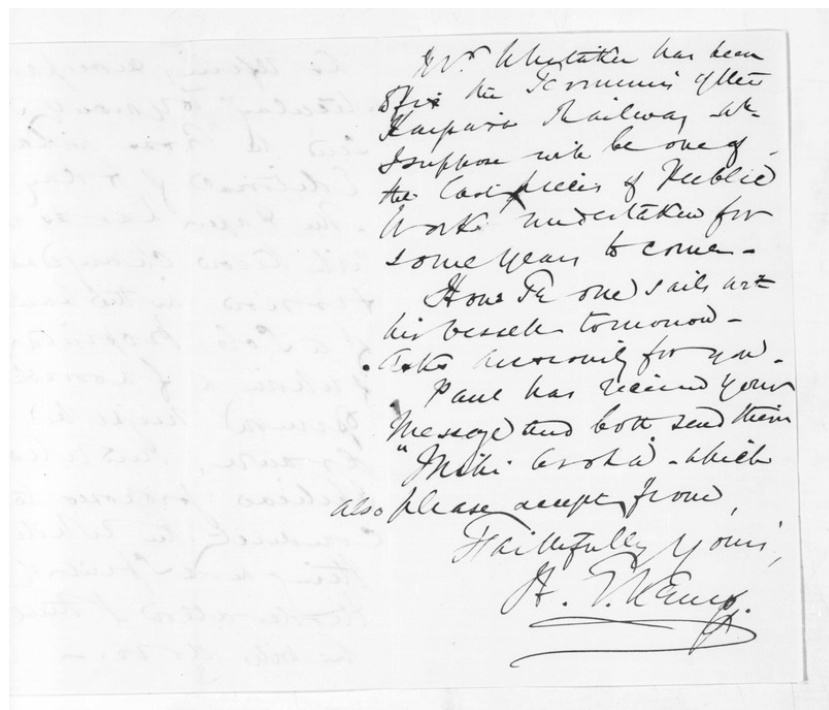 Mr Whitaker has been
to fix the Terminus of the
Kaipara Railway wh.
I suppose will be one of
the last pieces of Public
Works undertaken for
some years to come -
Hone one sails
his vessel tomorrow -
for you.
Paul has received your
Message and both send their
"Mihi Aroha" - which
also please accept from,
Faithfully yours,
H. T. Kemp.